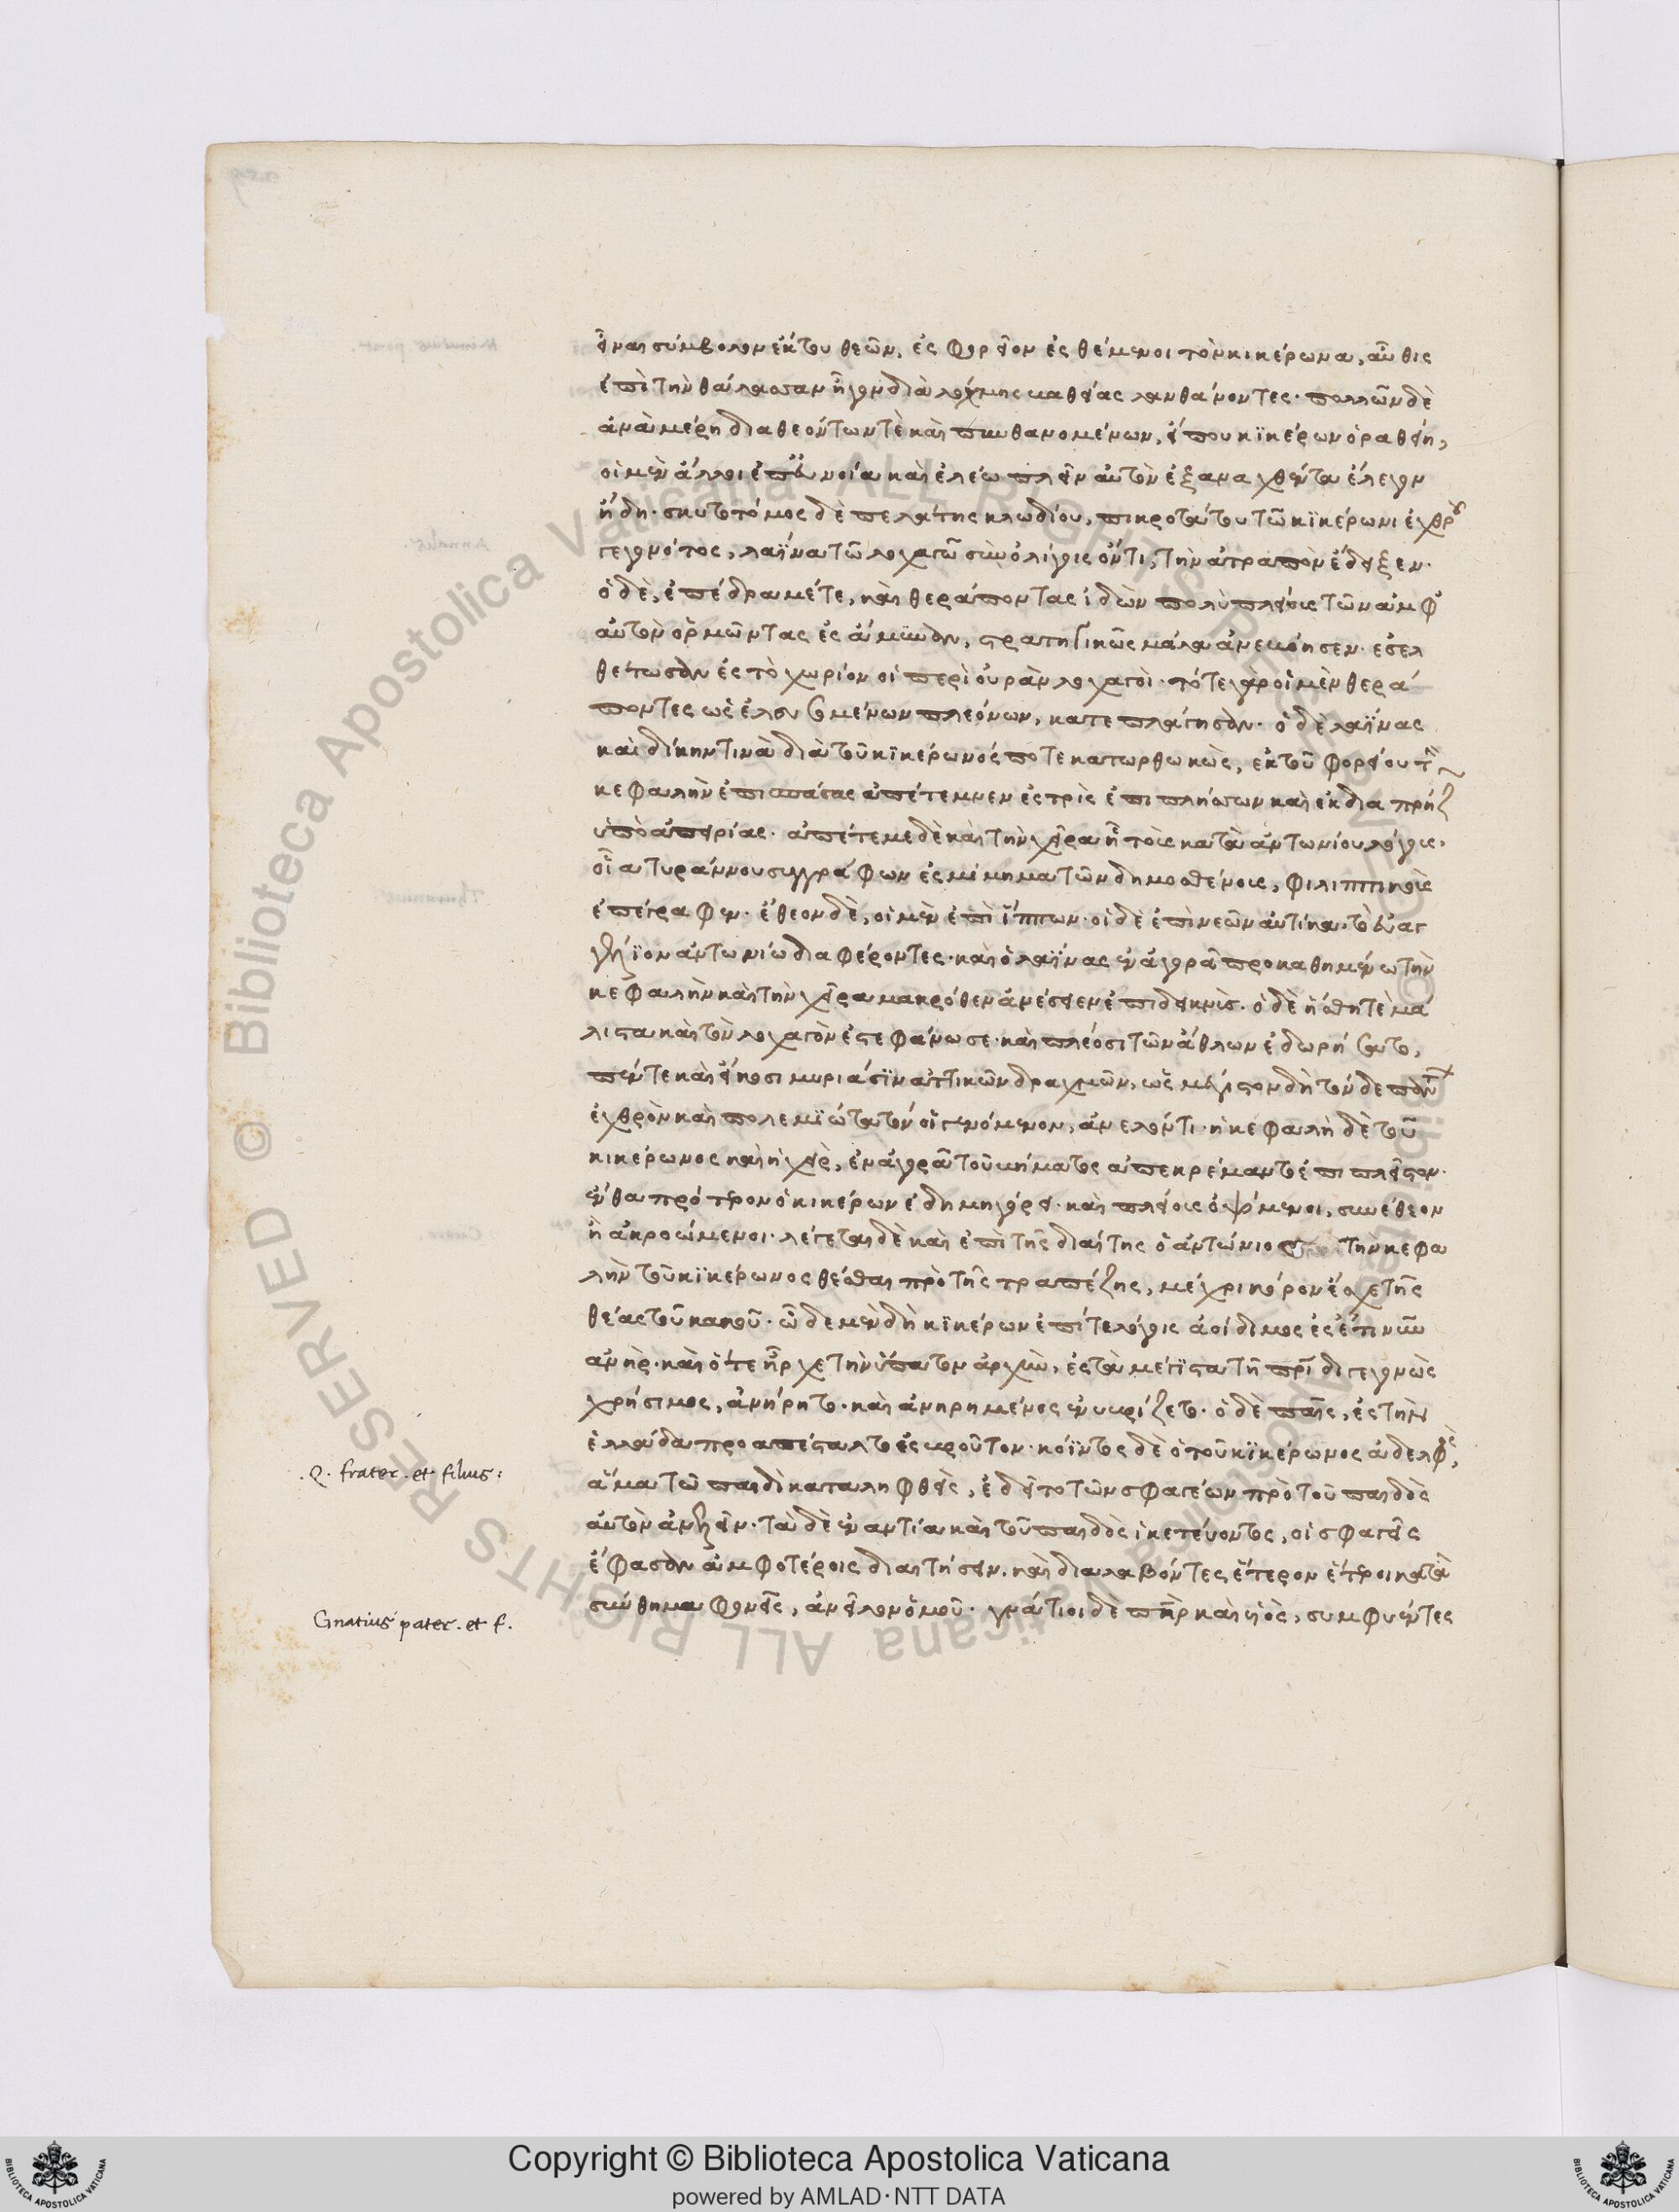 εἶναι σύμβολον ἐκ του θεῶν, ἐς φορεῖον ἐσθέμενοι τὸν κικέρωνα, αὖθις
ἐπὶ τὴν θάλασσαν ἦγον διὰ λόχμης μαθείας λανθάνοντες· πολλῶν δὲ
ἀνὰ μέρη διαθεόντων τὲ καὶ πυνθανομένων, εἴ που κϊκέρων ὁραθείη,
οἱ μὲν ἄλλοι ἐπ' εὐνοία καὶ ἐλέω πλεῖν αὐτὸν ἐξαναχθέντα ἔλεγον
ἤδη· σκυτοτόμος δὲ πελάτης κλωδίου, πικροτάτου τῶ κϊκέρωνι ἐχθροῦ
γεγονότος, λαίνα τῶ λοχαγῶ σὺν ὀλίγοις ὄντι, τὴν ἀτραπὸν ἔδειξεν·
ὁ δὲ, ἐπέδραμέ τε, καὶ θεράποντας ἰδὼν πολὺ πλείοις τῶν ἀμφ'
αὐτὸν ὁρμῶντας ἐς ἄμυναν, στρατηγικῶς μάλα ἀνεβόησεν· ἐσελ
θέτωσαν ἐς τὸ χωρίον οἱ περὶ οὐρὰν λοχαγοὶ· τότε γὰρ οἱ μὲν θερά
ποντες ὡς ἐλευσομένων πλεόνων, κατεπλάγησαν· ὁ δὲ λαίνας
καὶ δίκην τινὰ διὰ τοῦ κϊκέρωνός ποτε κατωρθωκὼς, ἐκ τοῦ φορείου τὴν
κεφαλὴν ἐπισπάσας ἀπέτεμνεν ἐς τρὶς ἐπιπλήσσων καὶ ἐκδιαπρίζων
ὑπὸ ἀπειρίας· ἀπέτεμε δὲ καὶ τὴν χεῖρα ἧ τοὺς κατὰ ἀντωνίου λόγους,
οἷα τυράννου συγγράφων ἐς μίμημα τῶν δημοσθένους, φιλιππικοὺς
ἐπέγραφεν· ἔθεον δὲ, οἱ μὲν ἐπὶ ἵππων· οἱ δὲ ἐπὶ νεῶν αὐτίκα, τὸ εὐαγ
γέλϊον ἀντωνίω διαφέροντες· καὶ ὁ λαίνας ἐν ἀγορᾶ προκαθημένω τὴν
κεφαλὴν καὶ τὴν χεῖρα μακρόθεν ἀνέσειεν ἐπιδεικνὺς· ὁ δὲ ἥσθη τὲ μά
λιστα καὶ τὸν λοχαγὸν ἐστεφάνωσε· καὶ πλέοσι τῶν ἄθλων ἐδωρήσατο,
πέντε καὶ εἴκοσι μυριάσϊν ἀττικῶν δραχμῶν, ὡς μέγιστον δὴ τόνδε πάντων
ἐχθρὸν καὶ πολεμϊώτατόν οἱ γενόμενον, ἀνελόντι· ἡ κεφαλὴ δὲ τοῦ
κικέρωνος καὶ ἡ χεὶρ, ἐν ἀγορᾶ τοῦ βήματος ἀπεκρέμαντο ἐπιπλεῖστον·
ἔνθα πρότερον ὁ κικέρων ἐδημηγόρει· καὶ πλείους ὀψόμενοι, συνέθεον
ἢ ἀκροώμενοι· λέγεται δὲ καὶ ἐπὶ τῆς διαίτης ὁ ἀντώνιος τὴν κεφα
λὴν τοῦ κϊκέρωνος θέσθαι πρὸ τῆς τραπέζης, μέχρι κόρον ἔσχε τῆς
θέας τοῦ κακοῦ· ὧδε μὲν δὴ κϊκέρων ἐπί τε λόγοις ἀοίδιμος ἐς ἔτι νῦν
ἀνὴρ· καὶ ὅτε ἦρχε τὴν ὕπατον ἀρχὴν, ἐς τὰ μέγϊστα τῆ πατρίδι γεγονὼς
χρήσιμος, ἀνήρητο· καὶ ἀνηρημένος ἐνυβρίζετο· ὁ δὲ παῖς, ἐς τὴν
ἑλλάδα προαπέσταλτο ἐς βροῦτον· κόϊντος δὲ ὁ τοῦ κϊκέρωνος ἀδελφὸς,
.Q. frater. et filius:
ἅμα τῶ παιδὶ καταληφθεὶς, ἐδεῖτο τῶν σφαγέων πρὸ τοῦ παιδὸς
αὐτὸν ἀνελεῖν· τὰ δὲ ἐναντία καὶ τοῦ παιδὸς ἱκετεύοντος, οἱ σφαγεῖς
ἔφασαν ἀμφοτέροις διαιτήσειν· καὶ διαλαβόντες ἕτερον ἕτεροι κατὰ
σύνθημα φονεῖς, ἀνεῖλον ὁμοῦ· γνάτιοι δὲ πατὴρ καὶ υἱὸς, συμφυέντες
Gnatius pater. et f.
Copyright © Biblioteca Apostolica Vaticana
powered by AMLAD·NTT DATA